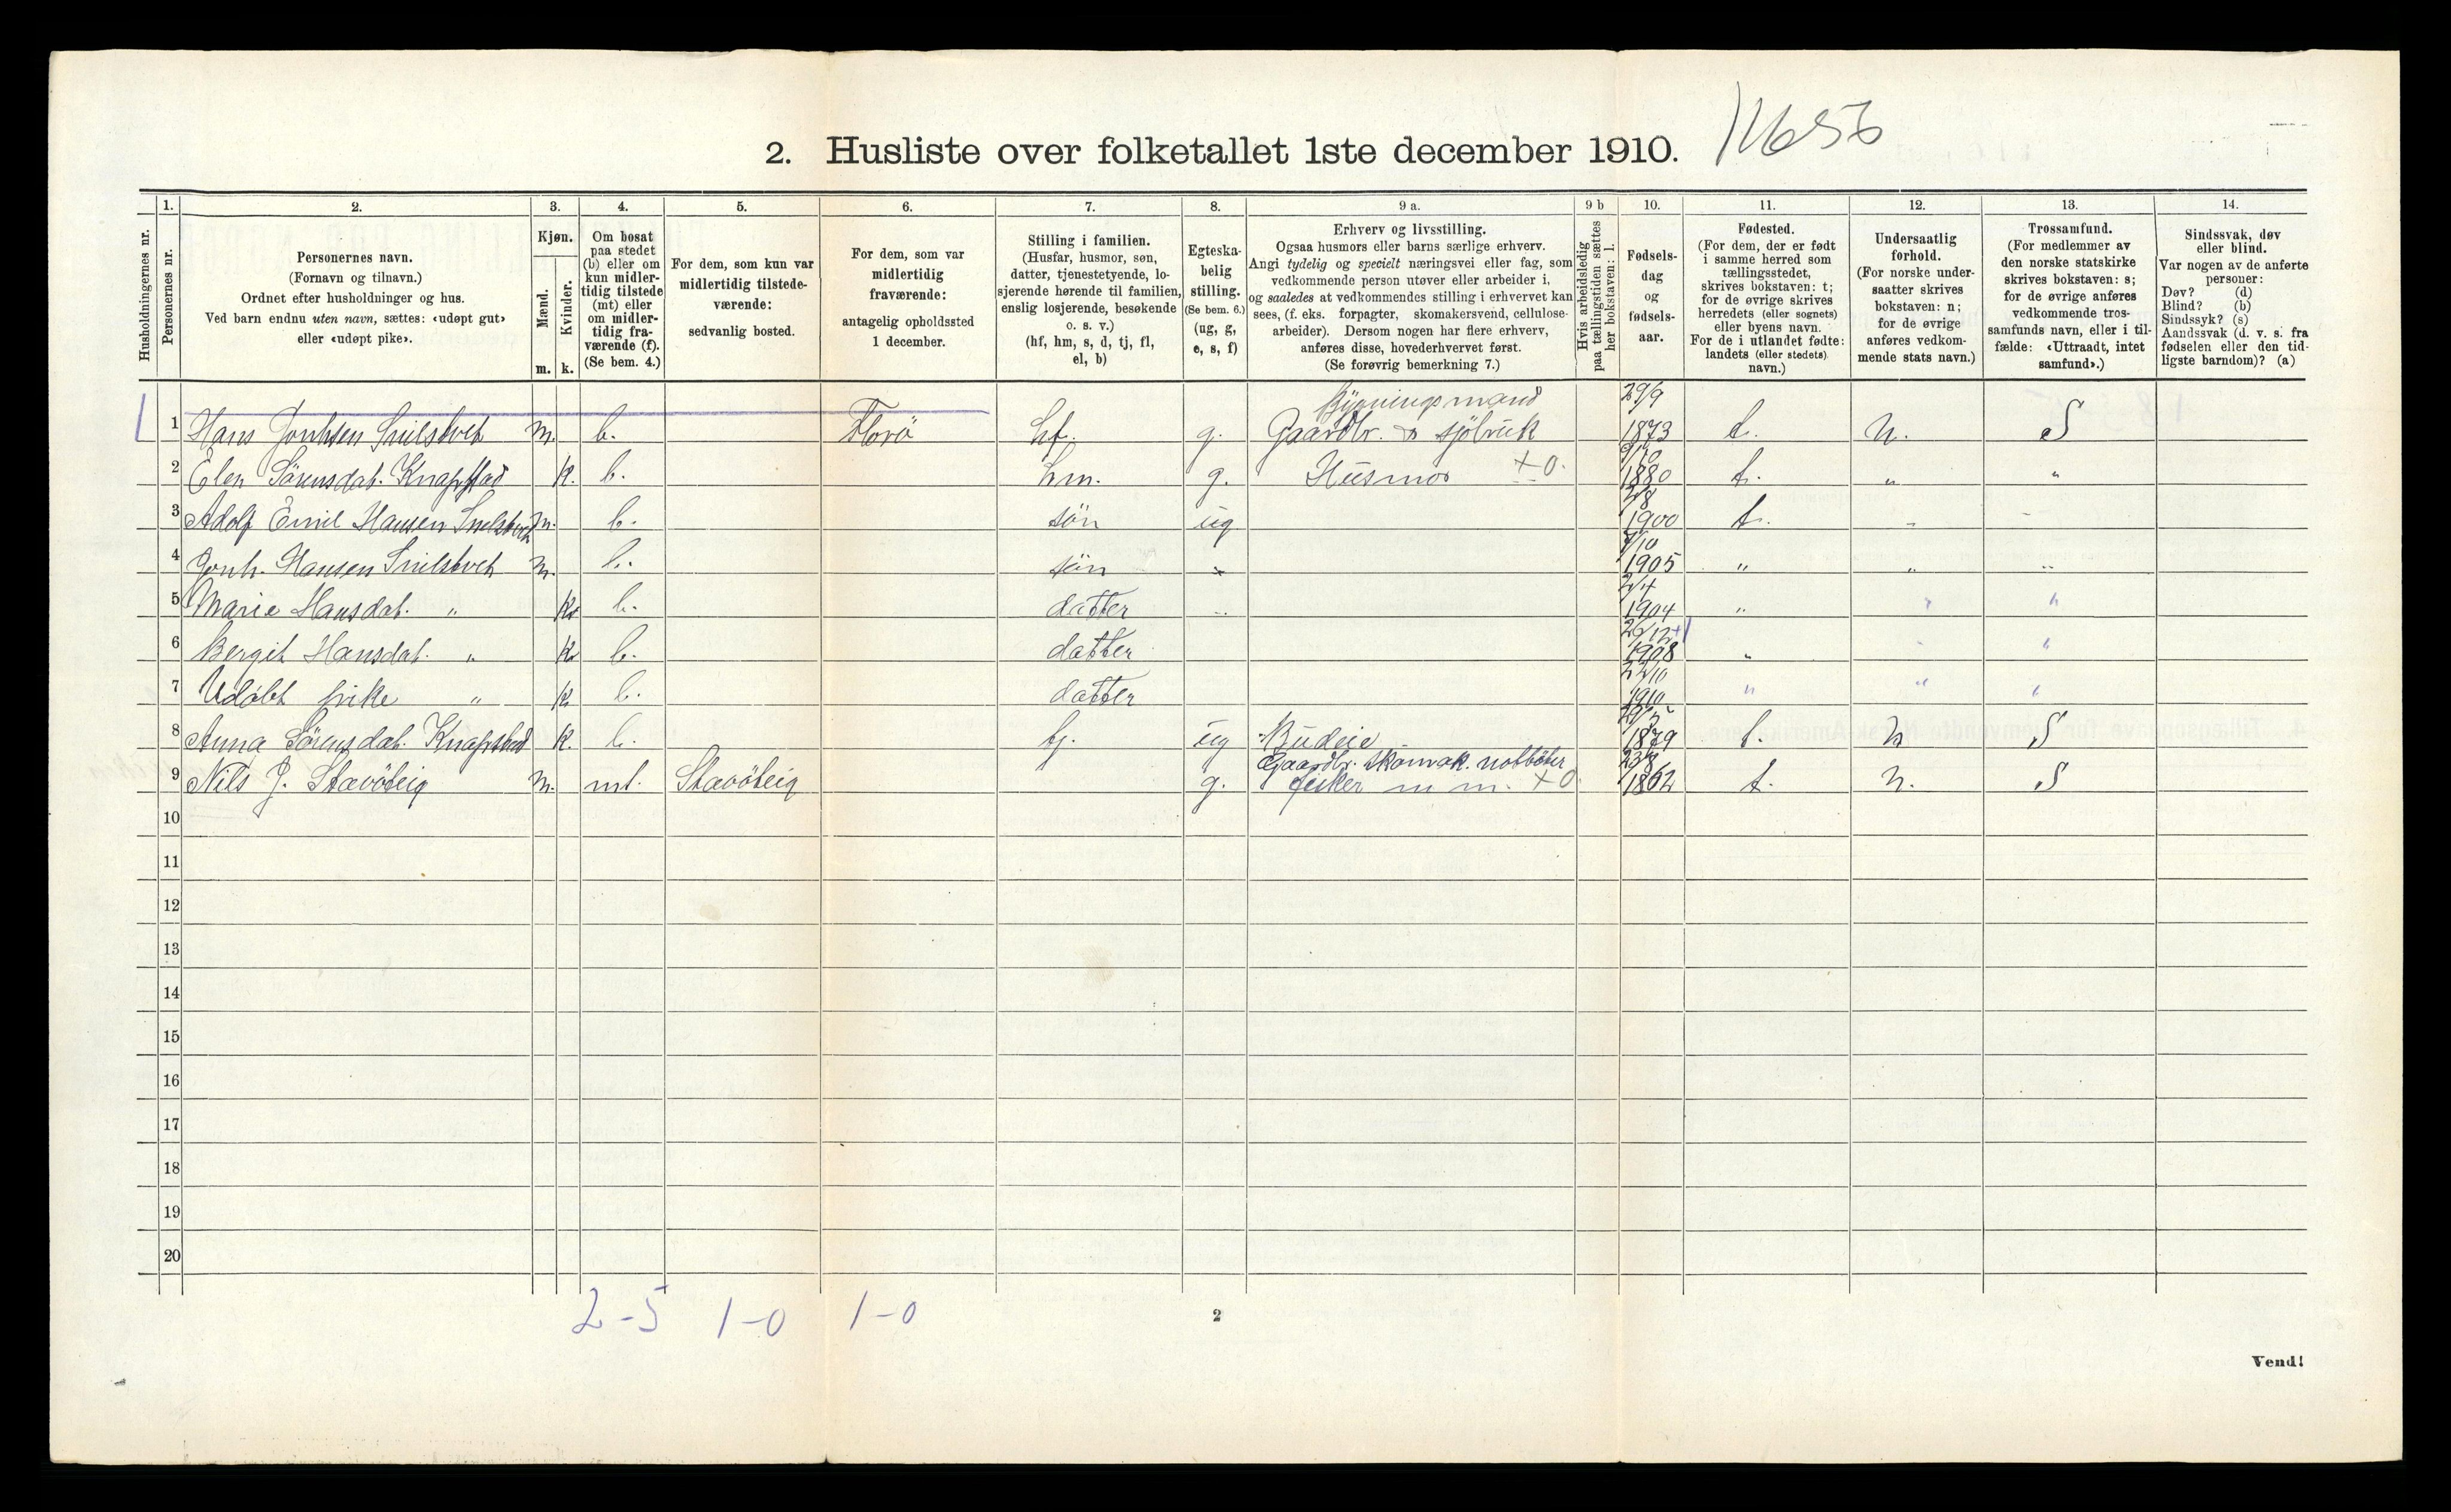 2. Husliste over folketallet 1ste december 1910.
Husholdningernes nr.
1. Personernes nr.
2. Personernes navn.
(Fornavn og tilnavn.)
Ordnet efter husholdninger og hus.
Ved barn endnu uten navn, sættes: «udøpt gut»
eller «udøpt pike».
3. Kjøn.
Mænd. m.
Kvinder. k.
4. Om bosat
paa stedet
(b) eller om
kun midler-
tidig tilstede
(mt) eller
om midler-
tidig fra-
værende (f).
(Se bem. 4.)
5. For dem, som kun var
midlertidig tilstede-
værende:
sedvanlig bosted.
6. For dem, som var
midlertidig
fraværende:
antagelig opholdssted
1 december.
7. Stilling i familien.
(Husfar, husmor, søn,
datter, tjenestetyende, lo-
sjerende hørende til familien,
enslig losjerende, besøkende
o. s. v.)
(hf, hm, s, d, tj, fl,
el, b)
8. Egteska-
belig
stilling.
(Se bem. 6.)
(ug, g,
e, s, f)
9 a. Erhverv og livsstilling.
Ogsaa husmors eller barns særlige erhverv.
Angi tydelig og specielt næringsvei eller fag, som
vedkommende person utøver eller arbeider i,
og saaledes at vedkommendes stilling i erhvervet kan
sees, (f. eks. forpagter, skomakersvend, cellulose-
arbeider). Dersom nogen har flere erhverv,
anføres disse, hovederhvervet først.
(Se forøvrig bemerkning 7.)
9 b Hvis arbeidsledig
paa tællingstiden sættes
her bokstaven: l.
10. Fødsels-
dag
og
fødsels-
aar.
11. Fødested.
(For dem, der er født
i samme herred som
tællingsstedet,
skrives bokstaven: t;
for de øvrige skrives
herredets (eller sognets)
eller byens navn.
For de i utlandet fødte:
landets (eller stedets)
navn.)
12. Undersaatlig
forhold.
(For norske under-
saatter skrives
bokstaven: n;
for de øvrige
anføres vedkom-
mende stats navn.)
13. Trossamfund.
(For medlemmer av
den norske statskirke
skrives bokstaven: s;
for de øvrige anføres
vedkommende tros-
samfunds navn, eller i til-
fælde: «Uttraadt, intet
samfund».)
14. Sindssvak, døv
eller blind.
Var nogen av de anførte
personer:
Døv? (d)
Blind? (b)
Sindssyk? (s)
Aandssvak (d. v. s. fra
fødselen eller den tid-
ligste barndom)? (a)
Bygningsmand 29/9
1 Hans Jonhsen Snilstvet m. b. Florö hf. g. Gaardbr. & sjöbruk 1873 t. n. S
2 Elen Sörensdat. Knapstad k. b. hm. g. Husmor +0. 1880 t. " "
3 Adolf Emil Hansen Snilstvet m. b. sön ug 2/8 1900 t. " "
4 Jonh. Hansen Snilstvet m. b. sön " 7/10 1905 " " "
5 Marie Hansdat. " k. b. datter " 2/4 1904 " " "
6 Bergit Hansdat. " k. b. datter 26/12 1908 " " "
7 Udöbt pike " k. b. datter 22/10 1910 " " "
8 Anna Sörensdat. Knapstad k. b. tj. ug Budeie 1879 t. n S
Gaardbr. skomak. notböter
9 Nils J. Stavöteig m. mt. Stavöteig g. fisker m m. +0 23/8 1862 t. n. S
10
11
12
13
14
15
16
17
18
19
20
2-5 1-0 1-0
2
Vend!